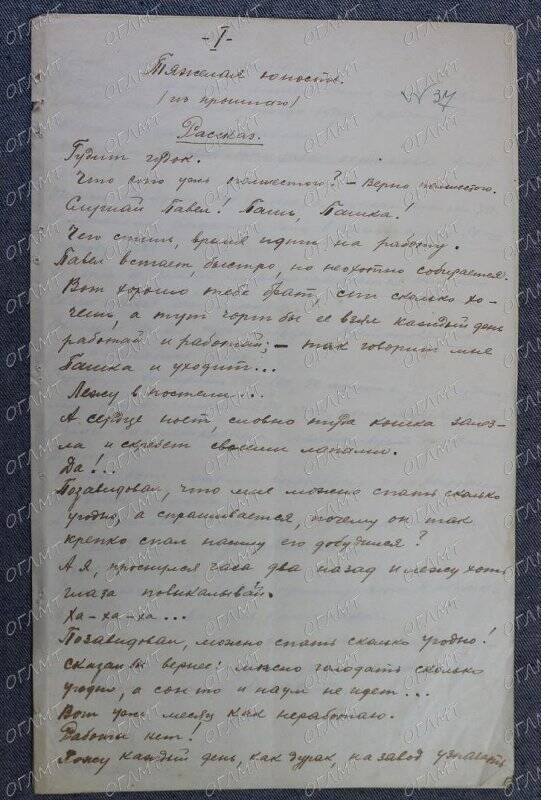 -I-
Тяжелая юность.
/из прошлаго/
N 37
Рассказ.
Гудит гудок.
Что это уже полшестого? - Верно полшестого.
Слушай Павел! Паш, Пашка!
Чего спишь, время идти на работу.
Павел встает, быстро, но неохотно собирается.
Вот хорошо тебе брат, спи сколько хо-
чешь, а тут чорт бы ее взял каждый день
работай и работай; - так говорит мне
Пашка и уходит...
Лежу в постели...
А сердце ноет, словно туда кошка залез-
ла и скребет своими лапами.
Да!..
Позавидовал, что мне можно спать сколько
угодно, а спрашивается, почему он так
крепко спал насилу его добудился?
А я, проснулся часа два назад и лежу хоть
глаза повыкалывай.
Ха-ха-ха...
Позавидовал, можно спать сколько угодно!
Сказал бы вернее: можно голодать сколько
угодно, а сон то и на ум не идет...
Вот уже месяц как неработаю.
Работы нет!
Хожу каждый день, как дурак, на завод узнавать